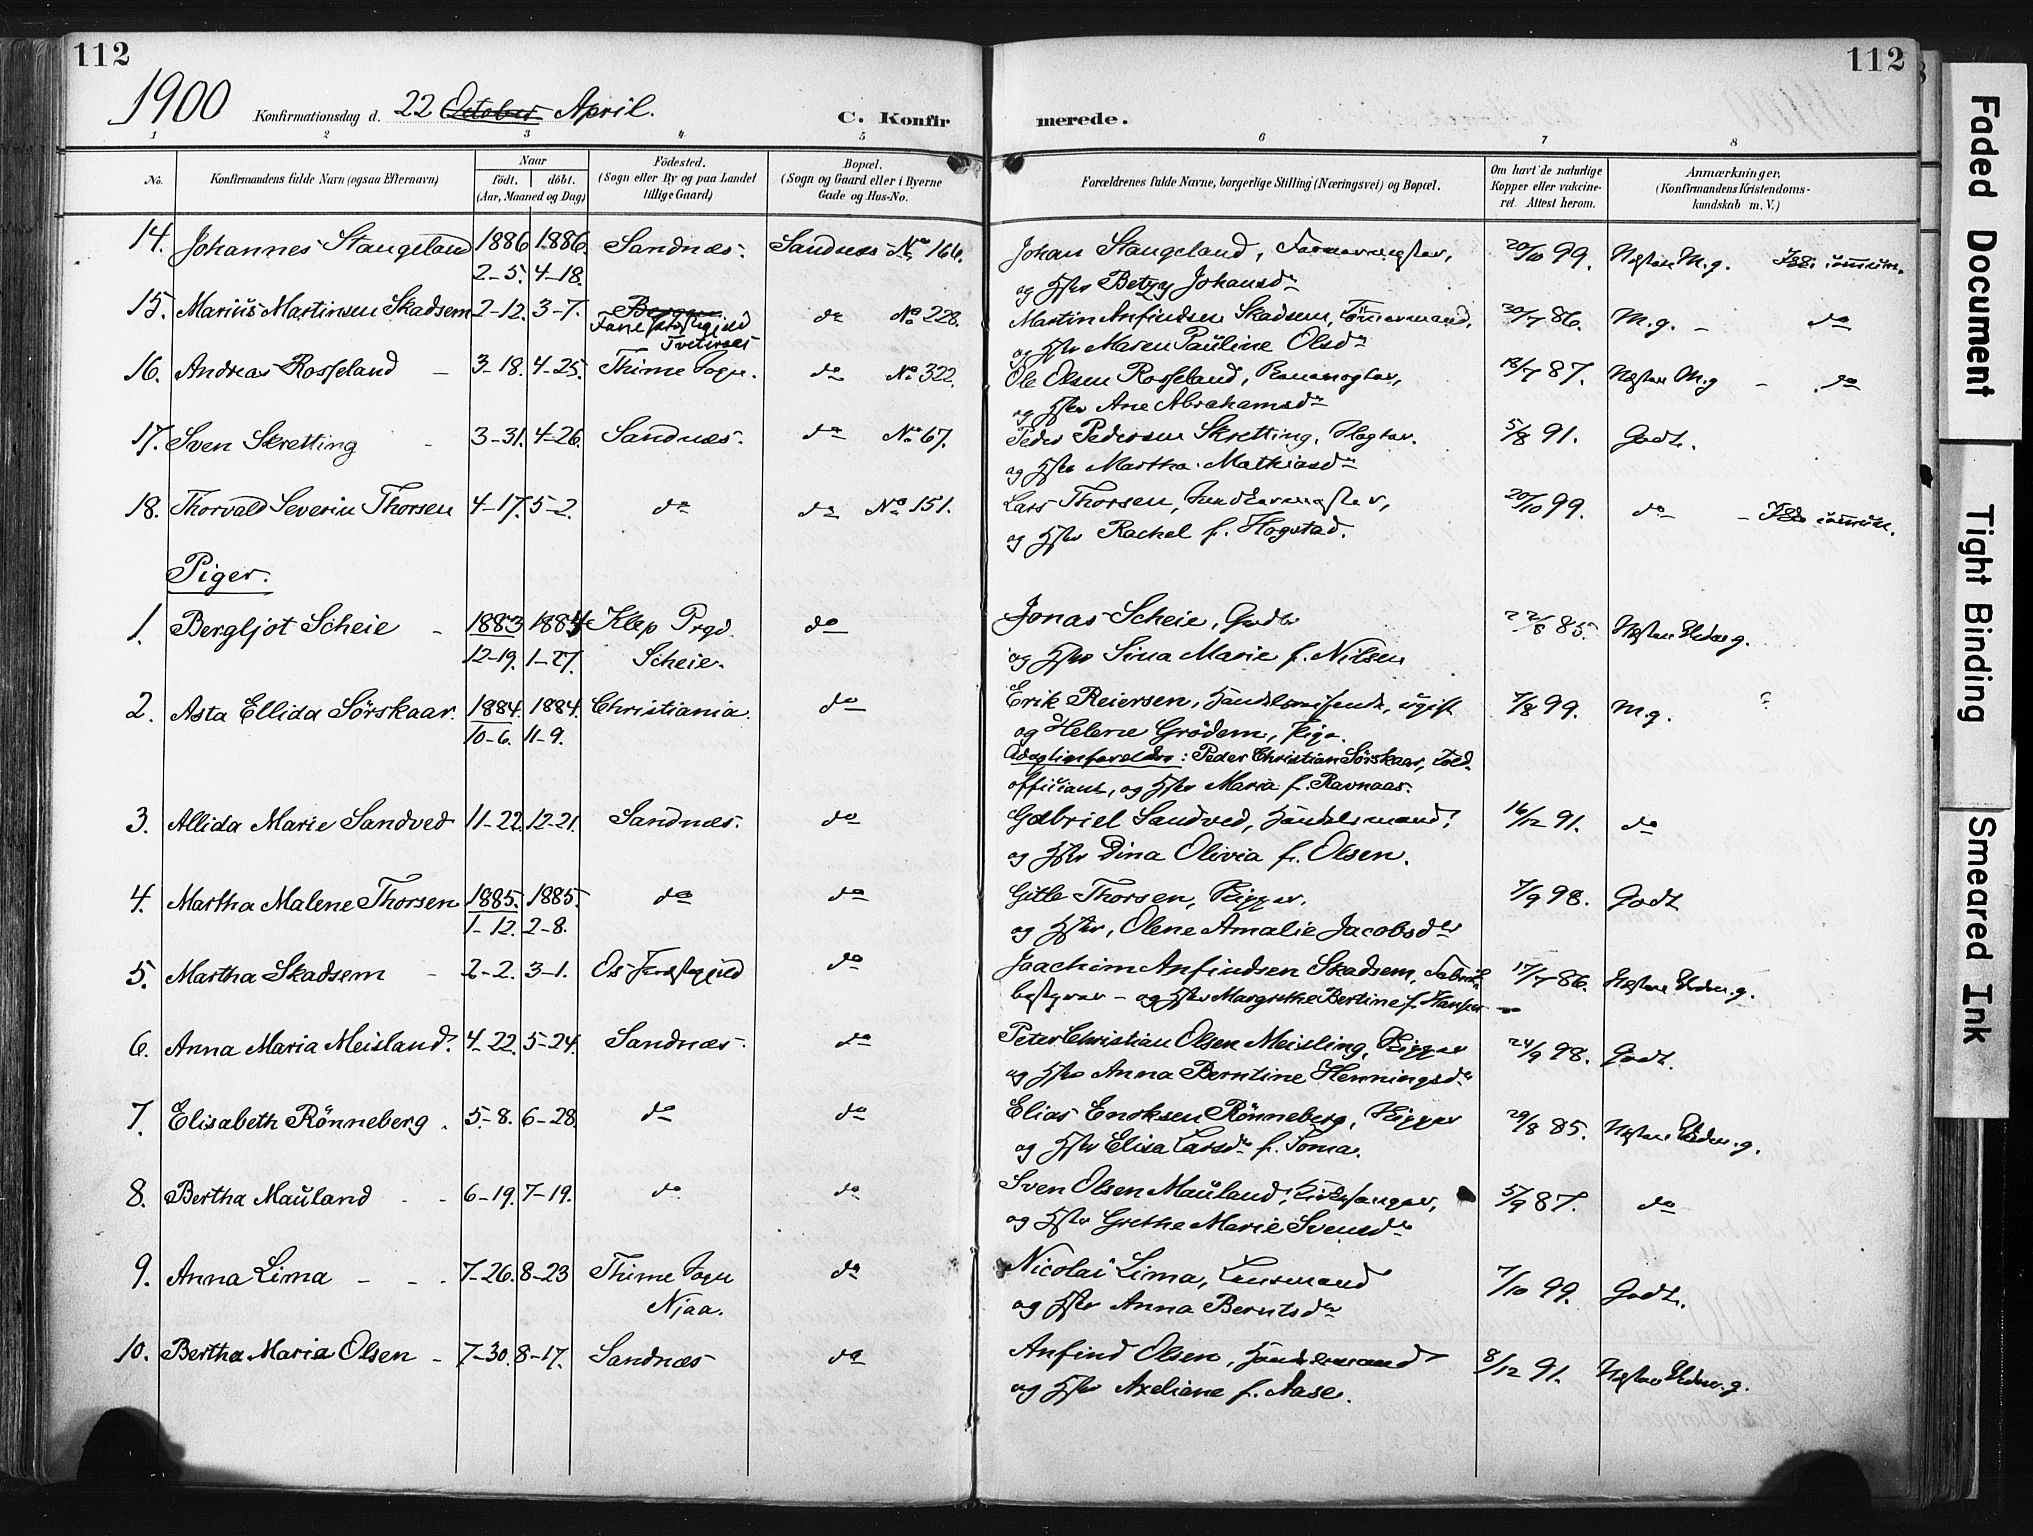 112
112
1900 Konfirmationsdag d. 22 October April.
C. Konfirmerede.
1 2 3 4 5 6 7 8
No. Konfirmandens fulde Navn (ogsaa Efternavn) Naar født. døbt. (Aar, Maaned og Dag) Fødested. (Sogn eller By og paa Landet tillige Gaard) Bopæl. (Sogn og Gaard eller i Byerne Gade og Hus-No. Forældrenes fulde Navne, borgerlige Stilling (Næringsvei) og Bopæl. Om havt de naturlige Kopper eller vakcineret. Attest herom. Anmærkninger. (Konfirmandens Kristendomskundskab m. V.)
14. Johannes Stangeland 1886 1886 Sandnæs. Sandnæs No 166. Johan Stangeland, 20/10 99. Næsten M.g.
2-5. 4-18. og Hstr Betzy Johansdr
15. Marius Martinsen Skadsem 2-12. 3-7. Fane do No 228. Martin Anfindsen Skadsem, Tømmermand, 20/7 86. M.g. - do
og Hstr Maren Pauline Olsdr
16. Andreas Rosseland - 3-18. 4-25. Thime Sogn. do No 322. Ole Olsen Rosseland, 18/7 87. Næsten M.g - do
og Hstr Ane Abrahamsdr
17. Sven Skretting - 3-31. 4-26. Sandnæs. do No 67. Peder Pedersen Skretting, 5/8 91. Godt.
og Hstr Martha Mathiasdr
18. Thorvald Severin Thorsen 4-17. 5-2. do do No 151. Lars Thorsen, 20/10 99. do
og Hstr Rachel f. Hogstad.
Piger.
1. Bergljot Scheie - 1883 1884 Klep Prgd. do Jonas Scheie, 22/8 85. Næsten Udm.g.
12-19. 1-27. Scheie. og Hstr Sina Marie f. Nilsen
2. Asta Ellida Sørskaar. 1884. 1884. Christiania. do Erik Reiersen, Handelsreisende, ugift 7/8 99. M.g.
10-6. 11-9. og Helene Grødem, Pige.
Adoptivforældre: Peder Christian Sørskaar, Told-
officiant, og Hstr Maria f. Ravnaas.
3. Allida Marie Sandved 11-22. 12-21. Sandnæs. do Gabriel Sandved, Handelsmand, 16/12 91. do
og Hstr Dina Olivia f. Olsen.
4. Martha Malene Thorsen 1885. 1885. do do Gitle Thorsen, 7/9 98. Godt
1-12. 2-8. og Hstr, Olene Amalie Jacobsdtr
5. Martha Skadsem - 2-2. 3-1. Os Præstegjeld do Joachim Anfindsen Skadsem, Fabrik- 17/7 86. Næsten Udm.g.
bestyrer - og Hstr Margrethe Bertine f. Hansen
6. Anna Maria Meisland. 4-22. 5-24. Sandnæs. do Peter Christian Olsen Meisling, 24/9 98. Godt.
og Hstr Anna Berntine Henningsdr
7. Elisabeth Rønneberg. 5-8. 6-28. do do Elias Enoksen Rønneberg, 29/8 85. Næsten Udm.g.
og Hstr Elisa Larsdr f. Soma.
8. Bertha Mauland - - 6-19. 7-19. do do Sven Olsen Mauland, Kirkesanger, 5/9 87. do
og Hstr Grethe Marie Svensdr
9. Anna Lima - - - 7-26. 8-23 Thime Sogn do Nicolai Lima, Lensmand 7/10 99. Godt.
Njaa. og Hstr Anna Berntsdr
10. Bertha Maria Olsen - 7-30. 8-17. Sandnæs do Anfind Olsen, Handelsmand 8/12 91. Næsten Udm.g.
og Hstr Axeliane f. Aase.
Faded Document
Tight Binding
Smeared Ink